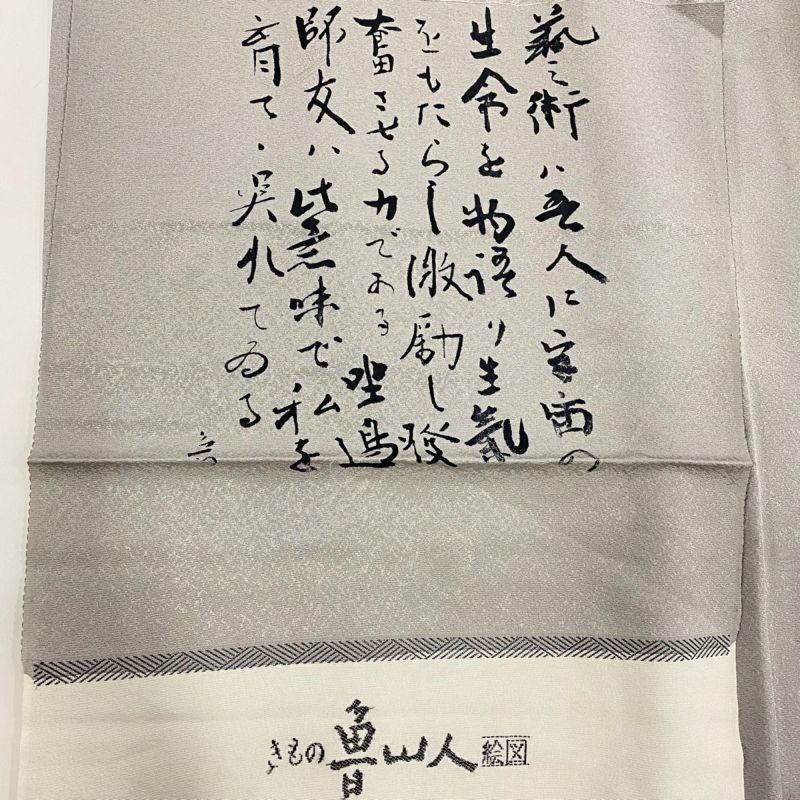 藝術ハ吾人に宇宙の
生命を物語り生氣
をもたらし激励し發
奮させる力である坐邊
師友ハ此意味で私を
育てゝ呉れてゐる
きもの魯山人絵図